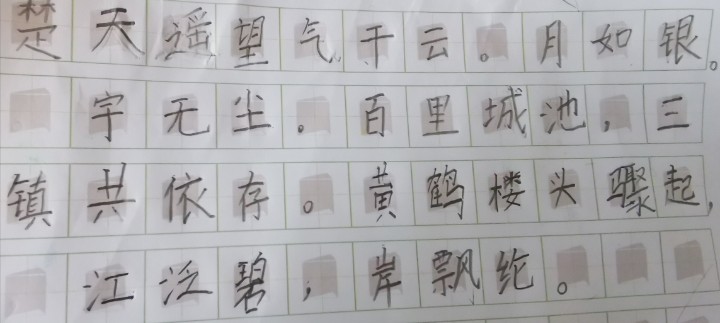 楚天遥望气干云。月如银。
宇无尘。百里城池,三
镇共依存。黄鹤楼头骤起,
江泛碧,岸飘纶。